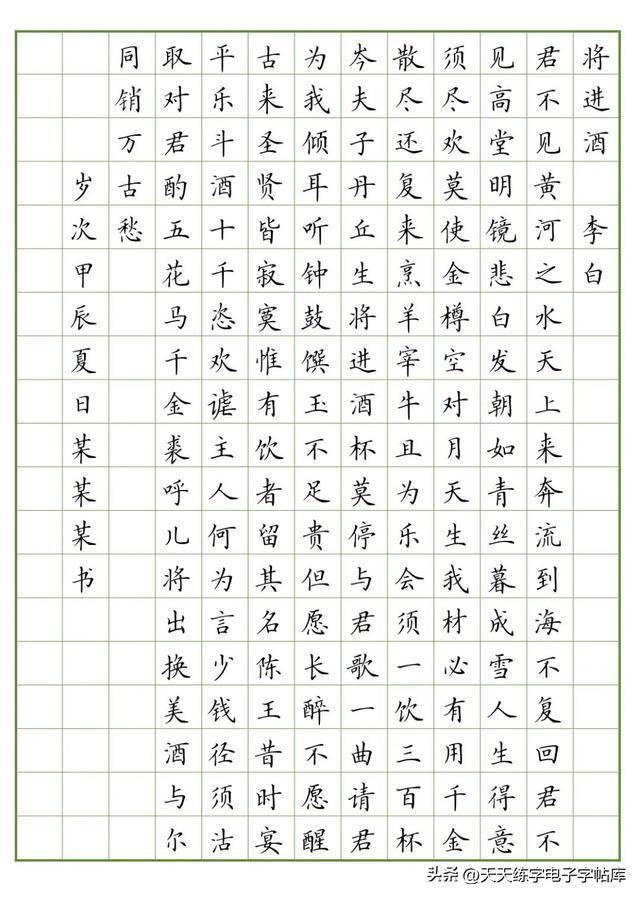 将进酒李白
君不见黄河之水天上来奔流到海不复回君不
见高堂明镜悲白发朝如青丝暮成雪人生得意
须尽欢莫使金樽空对月天生我材必有用千金
散尽还复来烹羊宰牛且为乐会须一饮三百杯
岑夫子丹丘生将进酒杯莫停与君歌一曲请君
为我倾耳听钟鼓馔玉不足贵但愿长醉不愿醒
古来圣贤皆寂寞惟有饮者留其名陈王昔时宴
平乐斗酒十千恣欢谑主人何为言少钱径须沽
取对君酌五花马千金裘呼儿将出换美酒与尔
同销万古愁
岁次甲辰夏日某某某书
头条 @天天练字电子字帖库